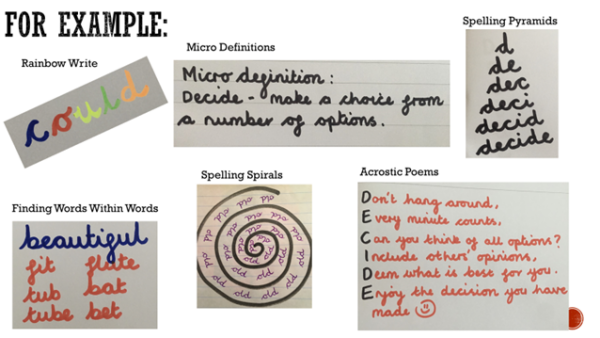 FOR EXAMPLE:
Rainbow Write
could
Micro Definitions
Micro definition:
Decide - make a choice from
a number of options.
Spelling Pyramids
d
de
dec
deci
decid
decide
Finding Words Within Words
beautiful
fit flate
tub bat
tube bet
Spelling Spirals
old old old old old old old old old old old old old old old old old old old old
Acrostic Poems
Don't hang around,
Every minute counts,
Can you think of all options?
Include others' opinions,
Deem what is best for you.
Enjoy the decision you have
made